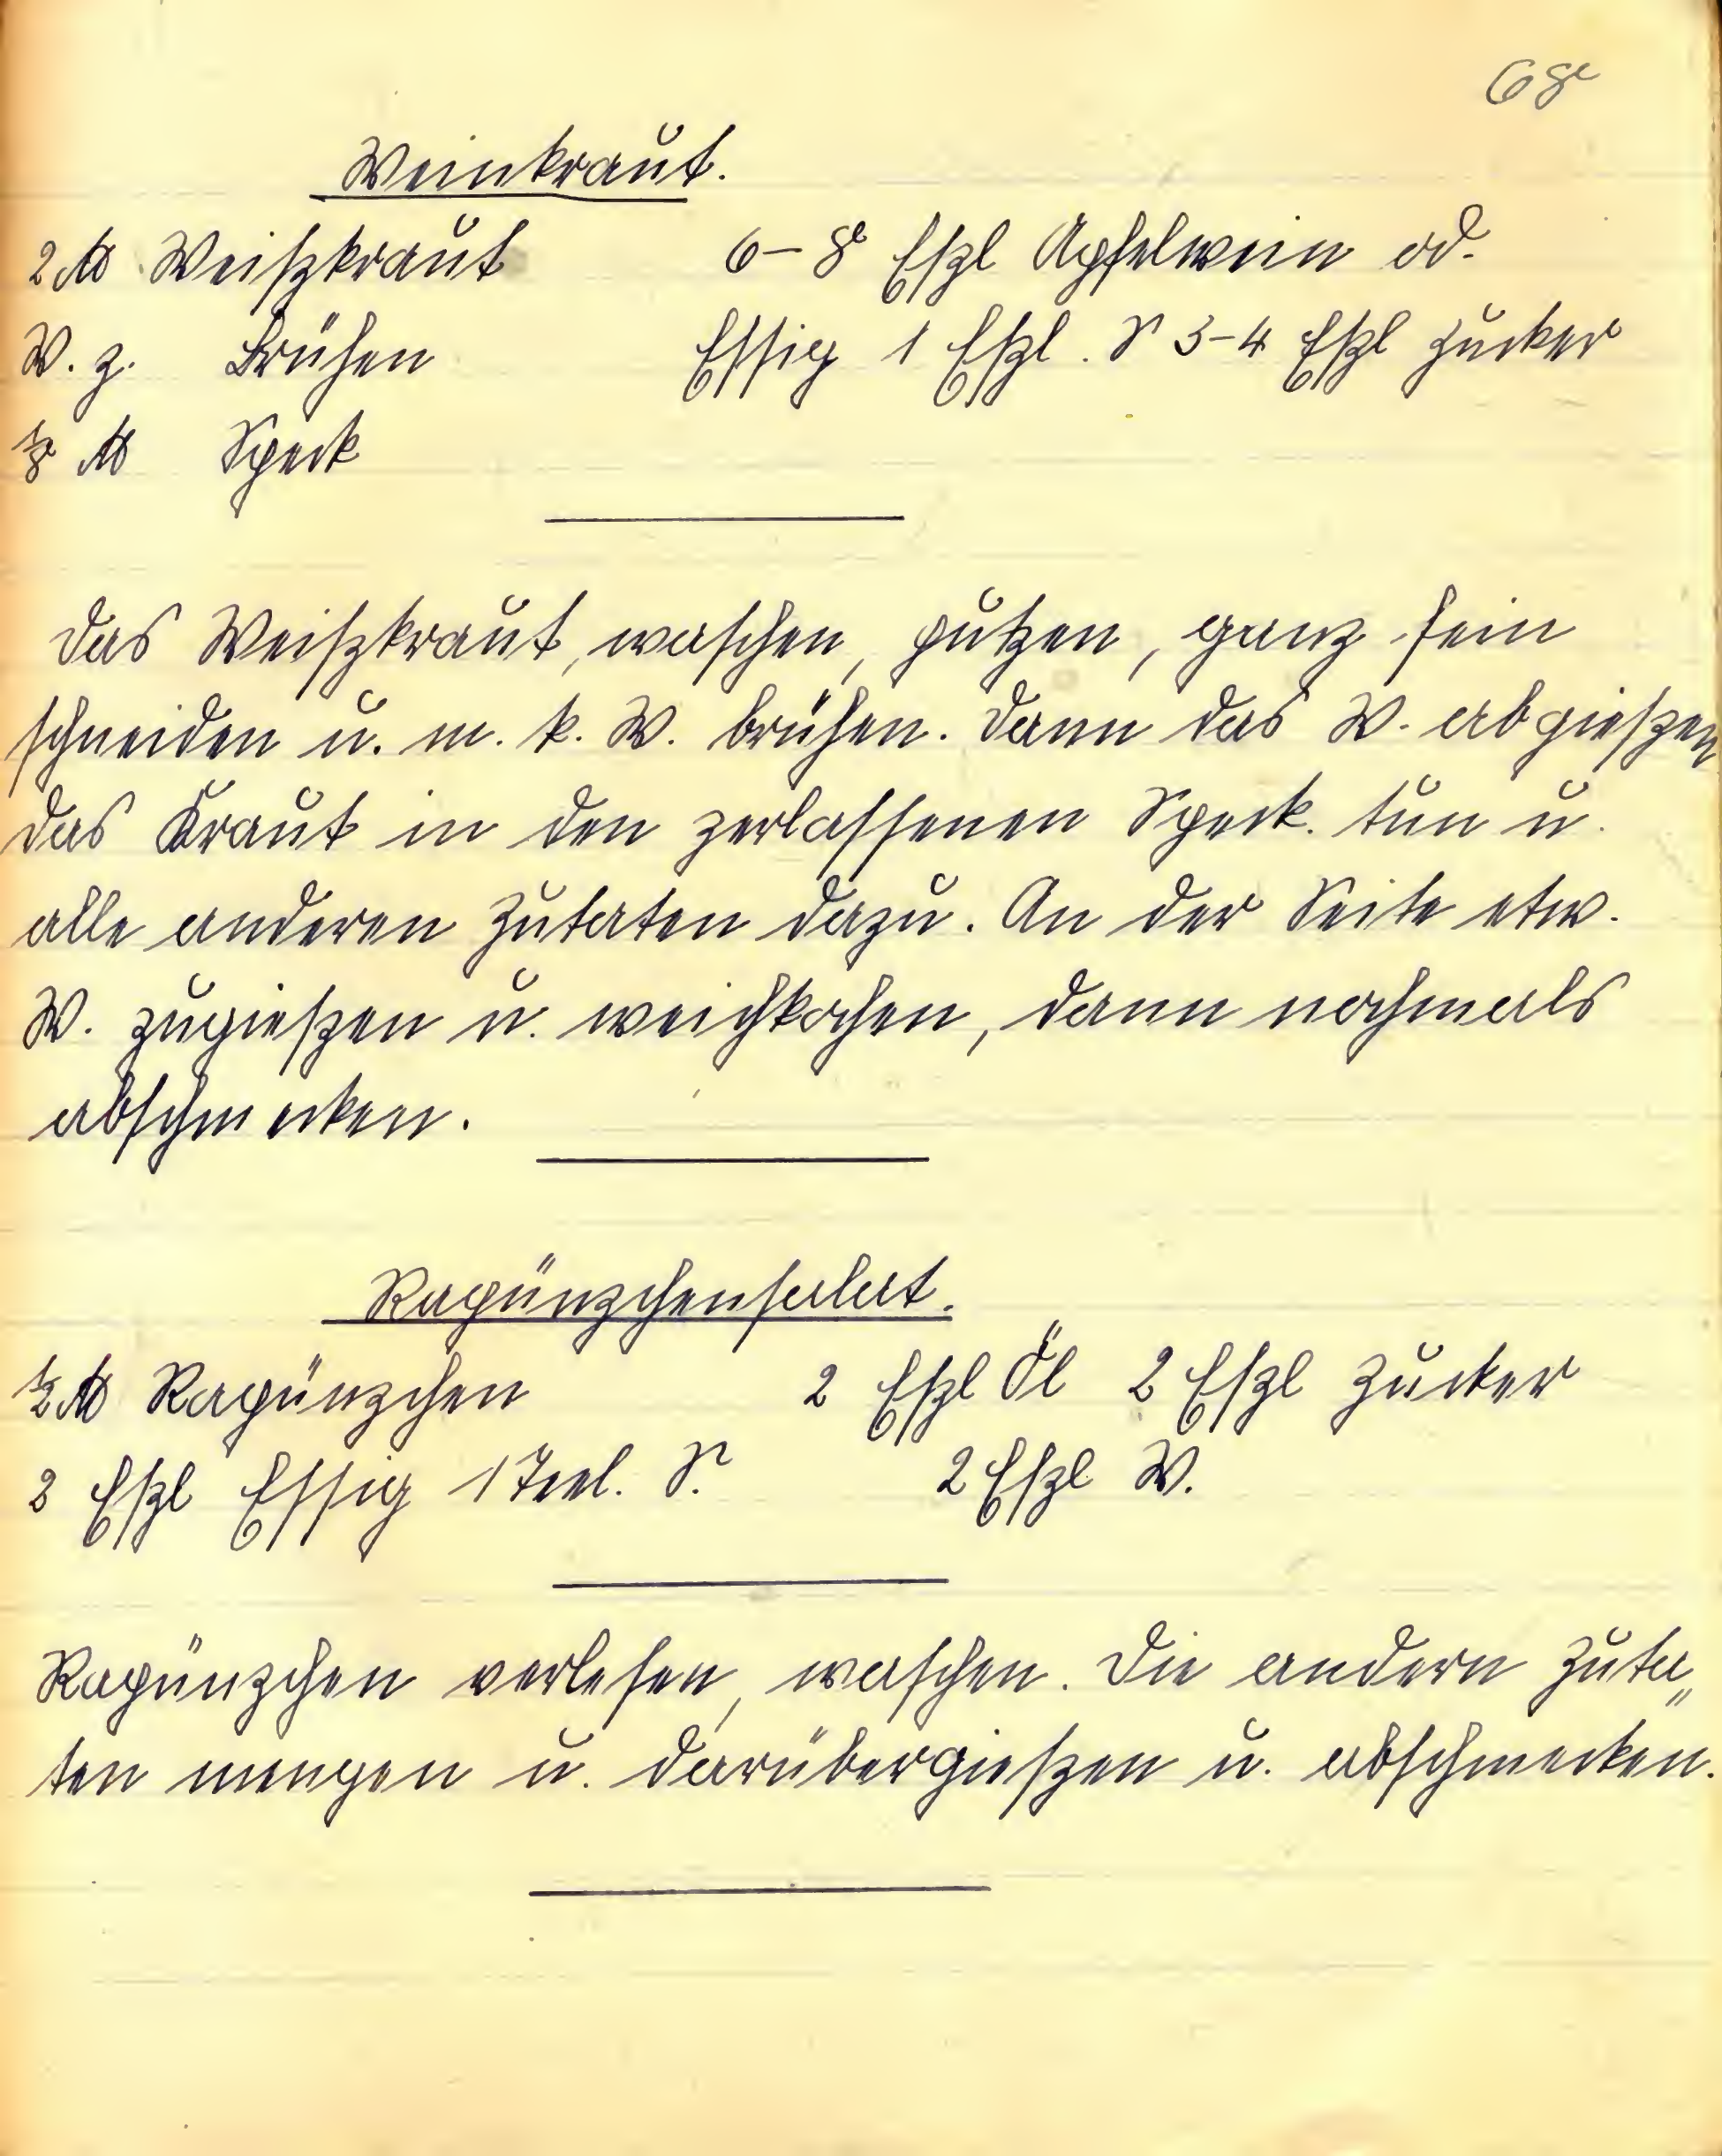 68
Weinkraut.
2 ℔ Weißkraut 6–8 Eßl Apfelwein od.
W. z. Brühen Essig 1 Eßl. S 3–4 Eßl Zucker
⅛ ℔ Speck
Das Weißkraut, waschen, putzen, ganz fein
schneiden u. m. k. W. brühen. Dann das W. abgießen
das Kraut in den zerlassenen Speck. tun u.
alle anderen Zutaten dazu. An der Seite etw.
W. zugießen u. weichkochen, dann nochmals
abschmecken.
Rapünzchensalat.
½ ℔ Rapünzchen 2 Eßl Öl 2 Eßl Zucker
2 Eßl Essig 1 Teel. S. 2 Eßl W.
Rapünzchen verlesen, waschen. Die andern Zuta„
ten mengen u. darübergießen u. abschmecken.